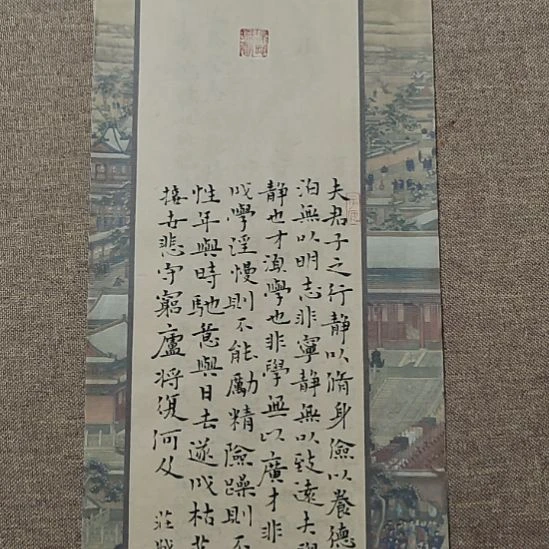 夫君子之行静以脩身儉以養德
泊無以明志非寧静無以致遠夫學
静也才須學也非學無以廣才非
以學淫慢則不能勵精險躁則不
性年與時馳意與日去遂以枯落
接女悲守窮廬将復何及
莊